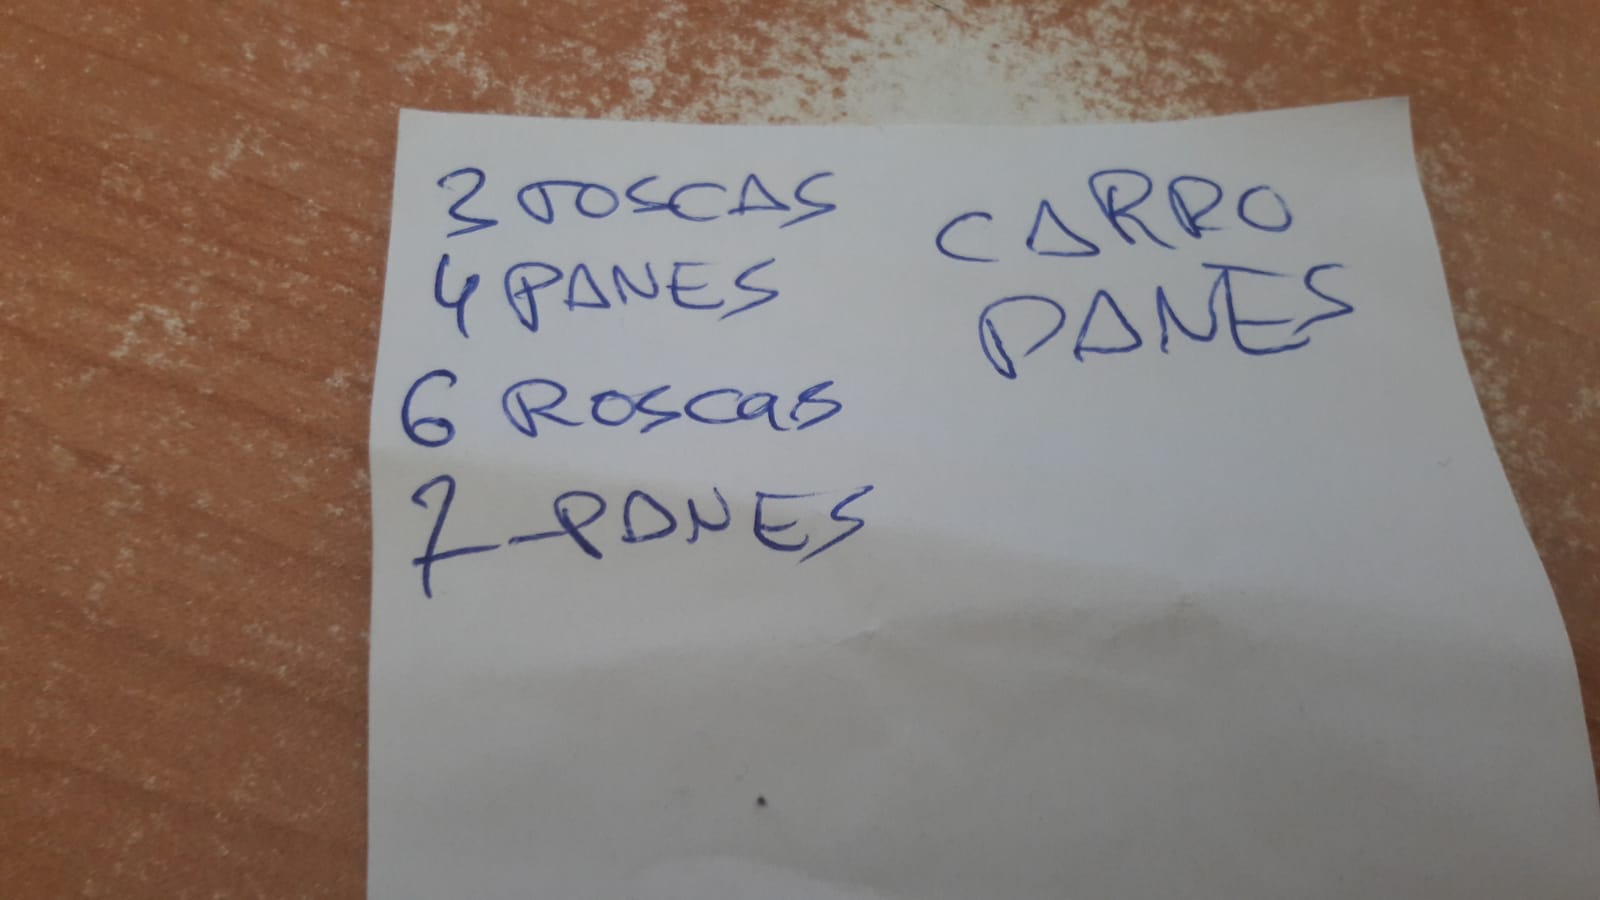 3 ROSCAS
4 PANES
6 ROSCAS
7 PANES
CARRO
PANES